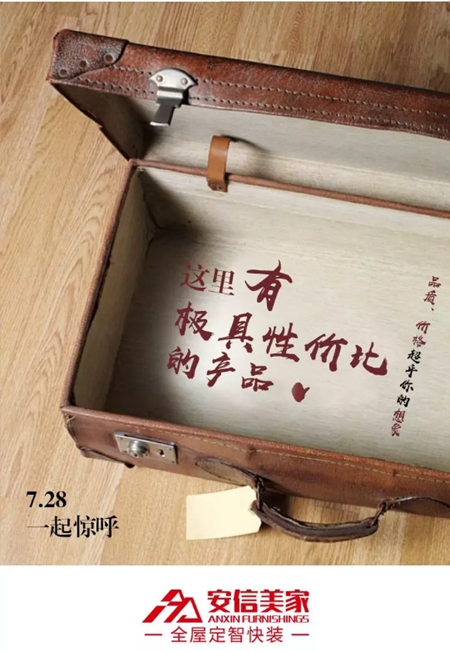 这里有
极具性价比
的产品
品质、价格超乎你的想象
7.28
一起惊呼
安信美家
ANXIN FURNISHINGS
全屋定智快装